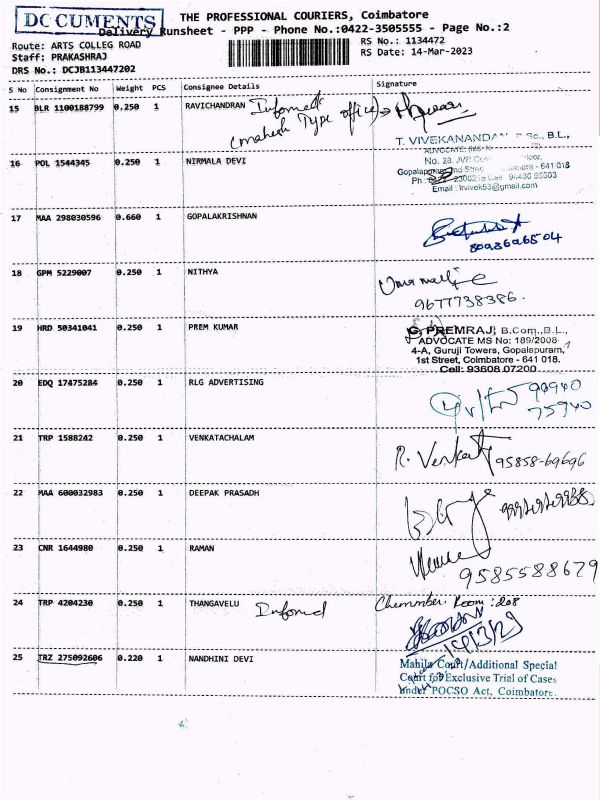 DOCUMENTS
THE PROFESSIONAL COURIERS, Coimbatore
Delivery Runsheet - PPP - Phone No.:0422-3505555 - Page No.:2
Route: ARTS COLLEG ROAD
RS No.: 1134472
Staff: PRAKASHRAJ
RS Date: 14-Mar-2023
DRS No.: DCJB113447202
S No Consignment No Weight PCS Consignee Details Signature
15 BLR 1100188799 0.250 1 RAVICHANDRAN Informed
(mahesh Type office)
T. VIVEKANANDAN B.Sc., B.L.,
16 POL 1544345 0.250 1 NIRMALA DEVI
ADVOCATE
No. 28, JVP
Gopalapuram 641 018
Email : tvivek53@gmail.com
17 MAA 298030596 0.660 1 GOPALAKRISHNAN
8093626504
18 GPM 5229007 0.250 1 NITHYA
9677738386.
19 HRD 50341041 0.250 1 PREM KUMAR
G. PREMRAJ, B.Com.,B.L.,
ADVOCATE MS No: 189/2008
4-A, Guruji Towers, Gopalapuram,
1st Street, Coimbatore - 641 018.
Cell: 93608 07200
20 EDQ 17475284 0.250 1 RLG ADVERTISING
99940
75940
21 TRP 1588242 0.250 1 VENKATACHALAM
R. Venkat 95858-69696
22 MAA 600032983 0.250 1 DEEPAK PRASADH
23 CNR 1644980 0.250 1 RAMAN
9585588679
24 TRP 4204230 0.250 1 THANGAVELU Informed
Chemmber Room : 208
14/3/23
25 TRZ 275092606 0.220 1 NANDHINI DEVI
Mahila Court/Additional Special
Court for Exclusive Trial of Cases
under POCSO Act, Coimbatore.